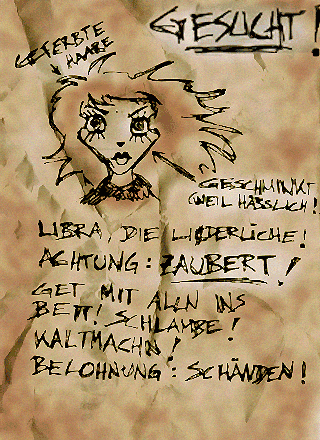 GESUCHT!
GEFERBTE
HAARE
GESCHMINKT
(WEIL HÄSSLICH!
LIBRA, DIE LIEDERLICHE!
ACHTUNG: ZAUBERT!
GET MIT ALLN INS
BETT! SCHLAMBE!
KALTMACHN!
BELOHNUNG: SCHÄNDEN!